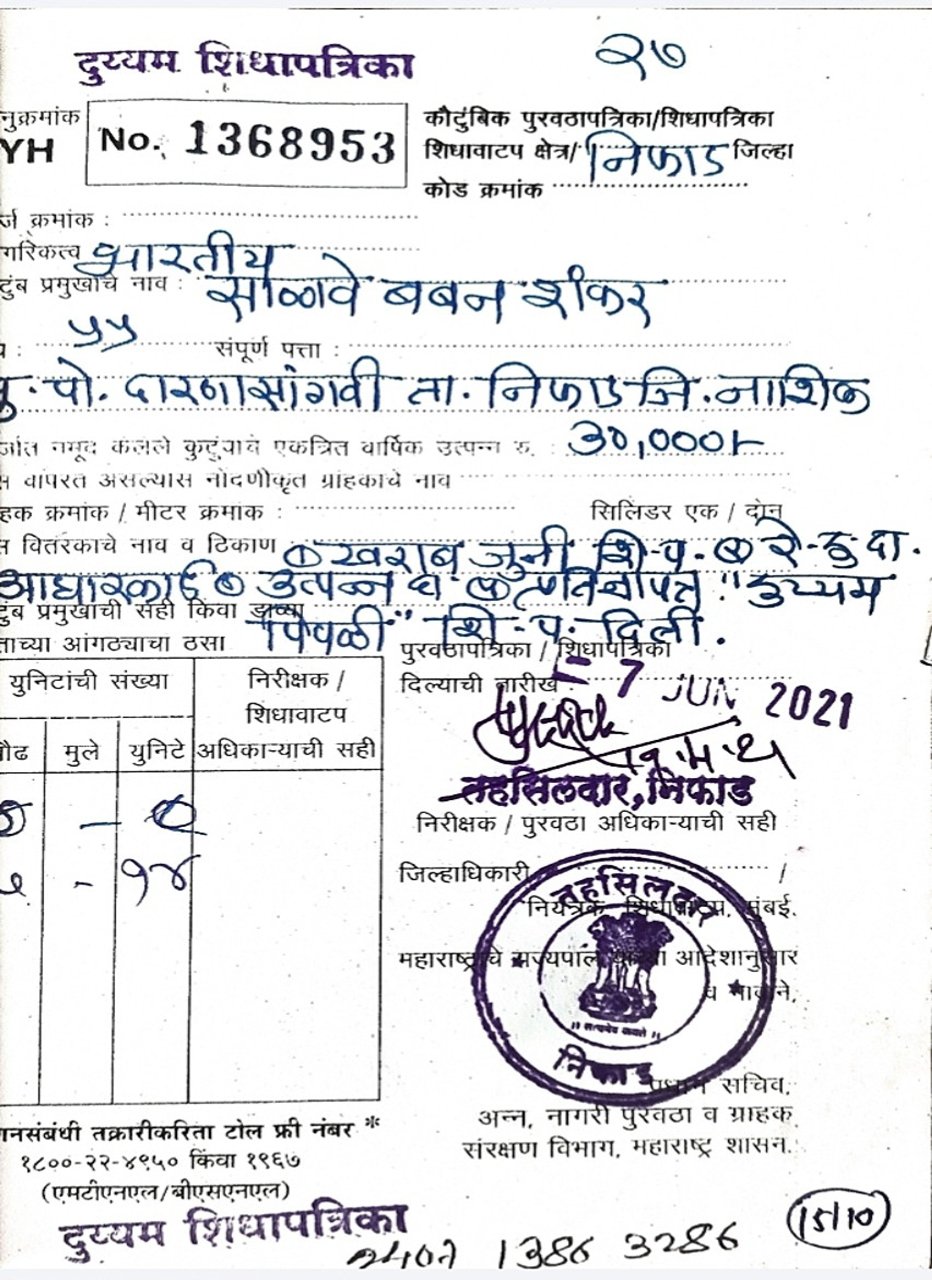 दुय्यम शिधापत्रिका
२७
नुक्रमांक
YH
No. 1368953
कौटुंबिक पुरवठापत्रिका/शिधापत्रिका
शिधावाटप क्षेत्र/ निफाड जिल्हा
कोड क्रमांक
र्ज क्रमांक :
गरिकत्व भारतीय
टुंब प्रमुखाचे नाव : साळवे बबन शंकर
५५ संपूर्ण पत्ता :
मु. पो. दारणासांगवी ता. निफाड जि. नाशिक
र्जात नमूद केलेले कुटुंबाचे एकत्रित वार्षिक उत्पन्न रु. : ३०,०००/-
स वापरत असल्यास नोंदणीकृत ग्राहकाचे नाव
हक क्रमांक / मीटर क्रमांक : सिलिंडर एक / दोन
स वितरकाचे नाव व ठिकाण खराब जुनी शि.प. रे.कु.दा.
आधारकार्ड उत्पन्न प्रतिज्ञापत्र "दुय्यम
टुंब प्रमुखाची सही किंवा डाव्या
ताच्या आंगठ्याचा ठसा पिवळी" शि.प. दिली.
पुरवठापत्रिका / शिधापत्रिका
दिल्याची तारीख - 7 JUN 2021
युनिटांची संख्या
निरीक्षक / शिधावाटप अधिकाऱ्याची सही
ौढ मुले युनिटे
- १४
तहसिलदार, निफाड
निरीक्षक / पुरवठा अधिकाऱ्याची सही
जिल्हाधिकारी /
नियंत्रक शिधावाटप, मुंबई.
महाराष्ट्राचे राज्यपाल यांच्या आदेशानुसार
व नावाने,
तहसिलदार
॥ सत्यमेव जयते ॥
निफाड
प्रधान सचिव,
अन्न, नागरी पुरवठा व ग्राहक
संरक्षण विभाग, महाराष्ट्र शासन.
ानसंबंधी तक्रारीकरिता टोल फ्री नंबर *
१८००-२२-४९५० किंवा १९६७
(एमटीएनएल/बीएसएनएल)
दुय्यम शिधापत्रिका
15/10
1386 3286